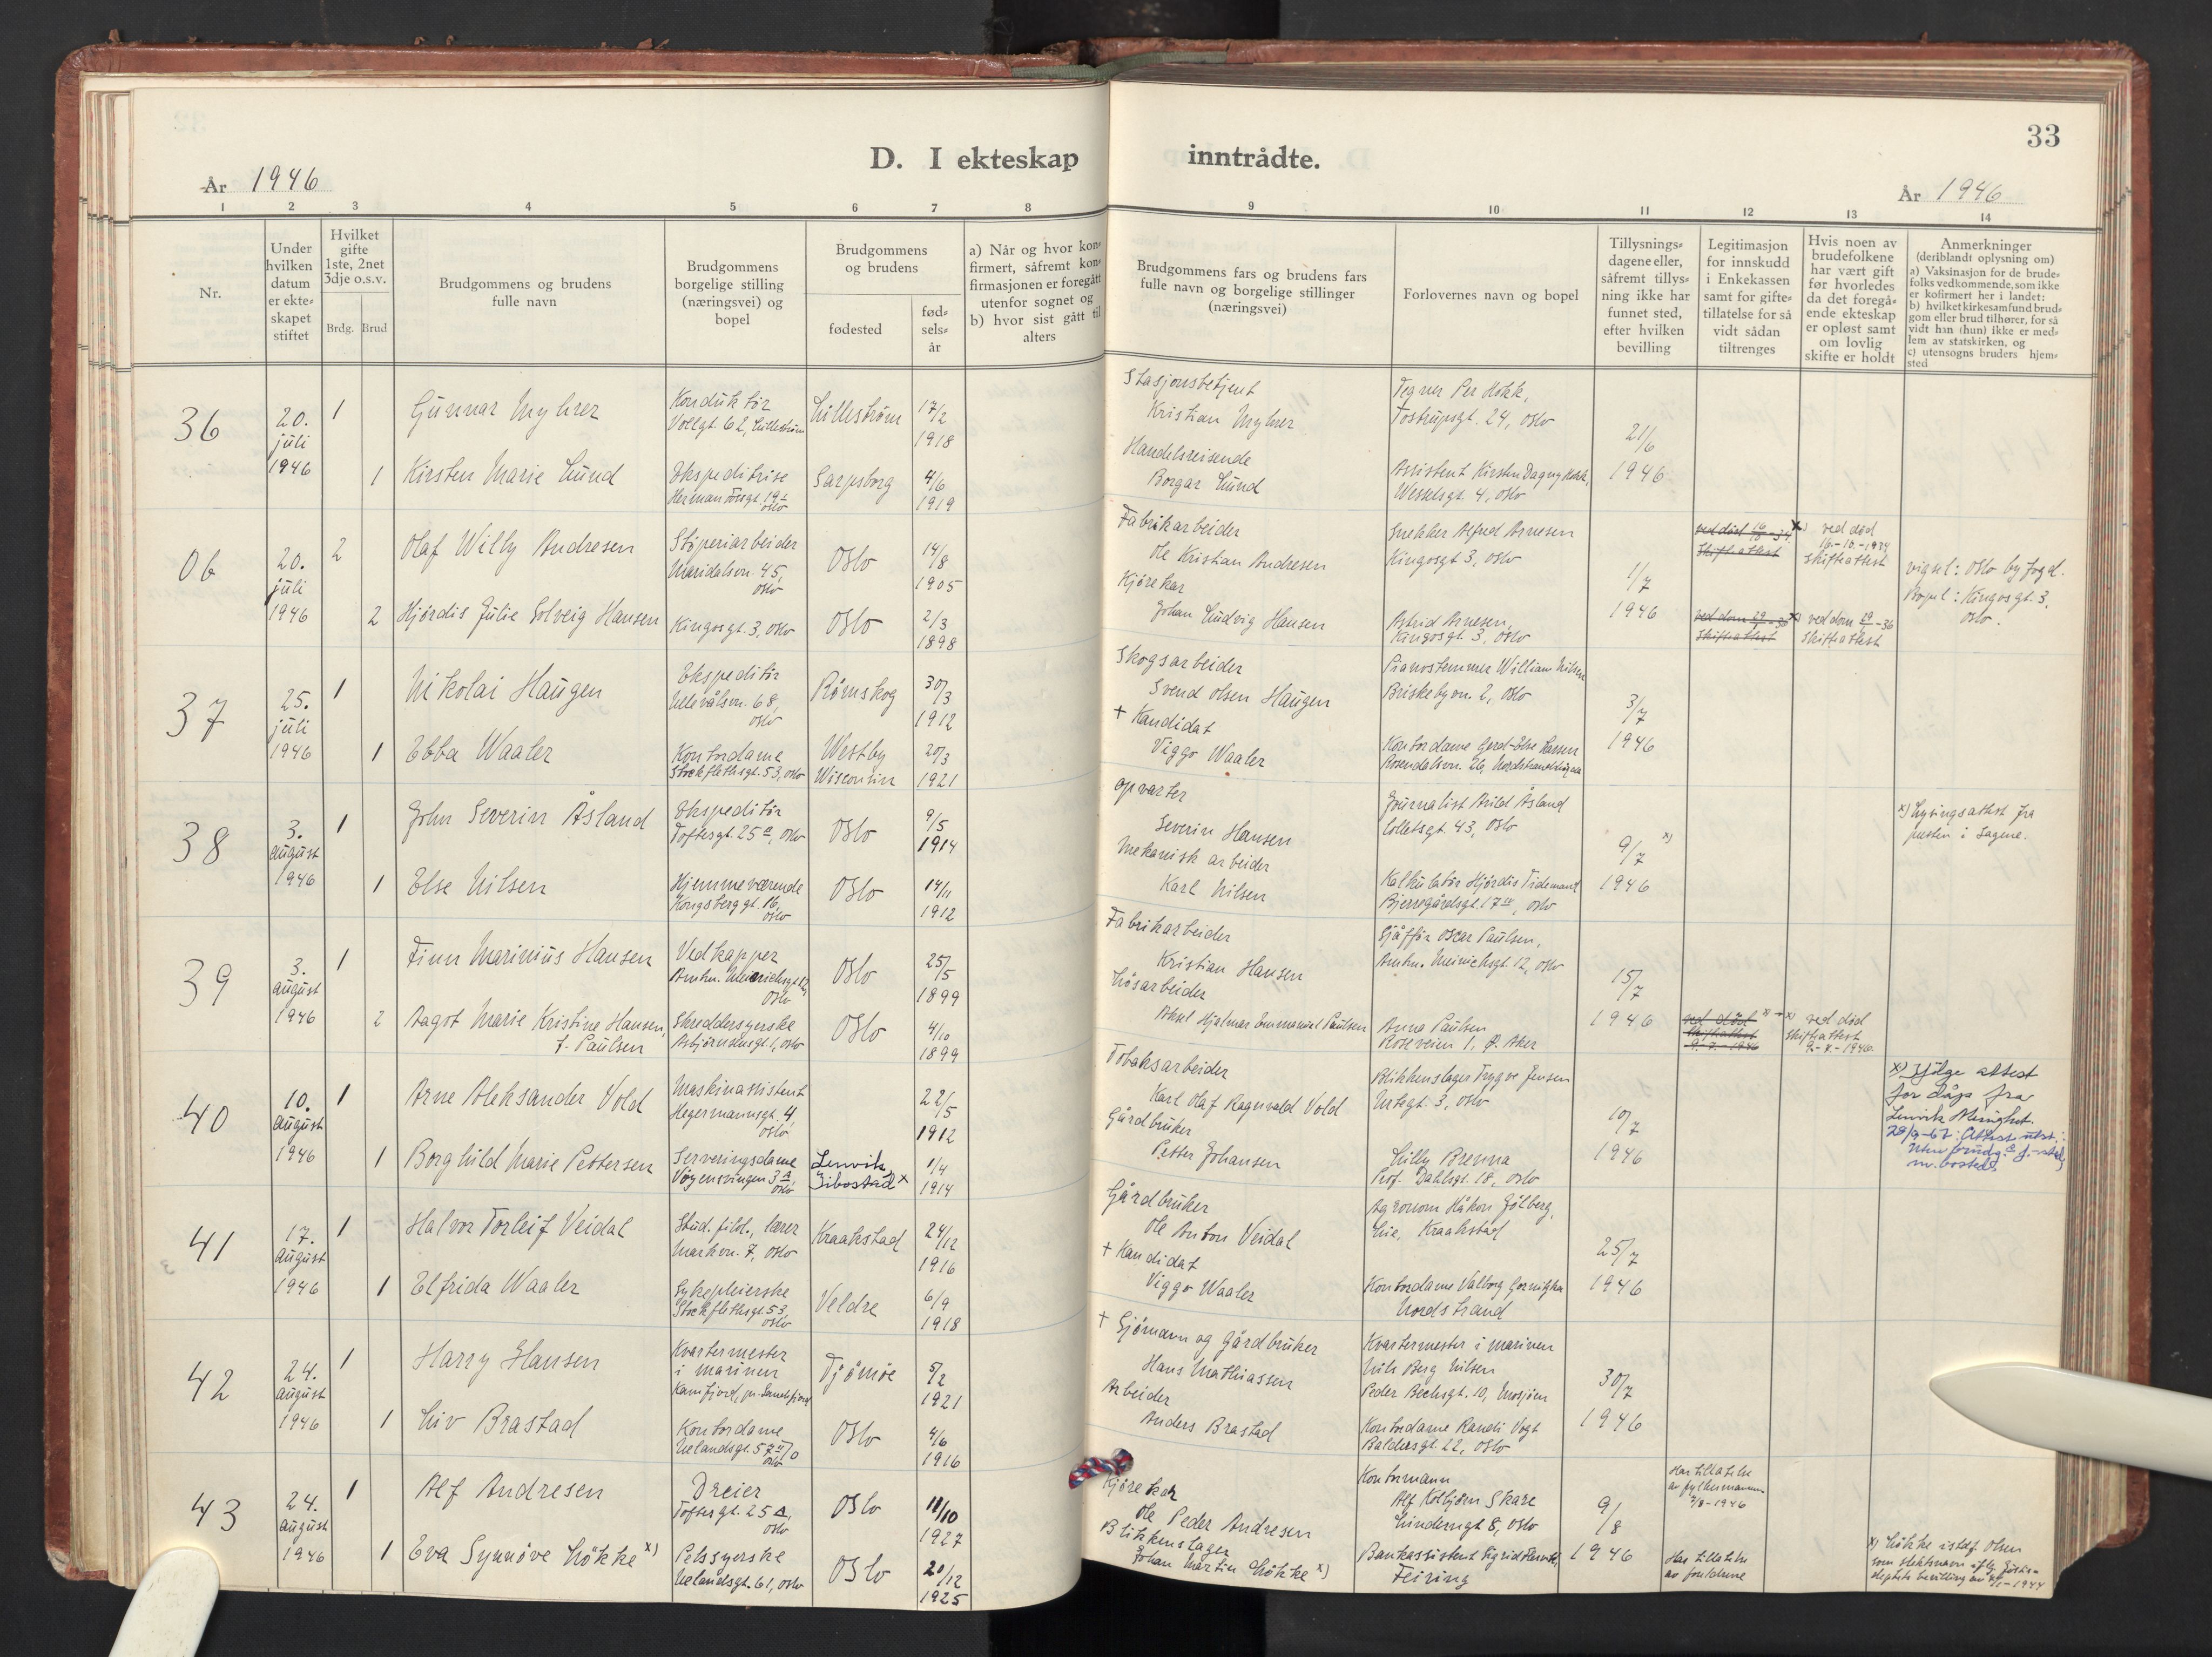 33
D. I ekteskap inntrådte.
År 1946
År 1946
1 2 3 4 5 6 7 8 9 10 11 12 13 14
Nr.
Under hvilken datum er ekte= skapet stiftet
Hvilket gifte 1ste, 2net 3dje o.s.v.
Brdg. Brud
Brudgommens og brudens fulle navn
Brudgommens borgelige stilling (næringsvei) og bopel
Brudgommens og brudens
fødested
fød= sels= år
a) Når og hvor kon= firmert, såfremt kon= firmasjonen er foregått utenfor sognet og
b) hvor sist gått til alters
Brudgommens fars og brudens fars fulle navn og borgelige stillinger (næringsvei)
Forlovernes navn og bopel
Tillysnings= dagene eller, såfremt tillys= ning ikke har funnet sted, efter hvilken bevilling
Legitimasjon for innskudd i Enkekassen samt for gifte= tillatelse for så vidt sådan tiltrenges
Hvis noen av brudefolkene har vært gift før hvorledes da det foregå= ende ekteskap er opløst samt om lovlig skifte er holdt
Anmerkninger (deriblandt oplysning om)
a) Vaksinasjon for de brude= folks vedkommende, som ikke er kofirmert her i landet:
b) hvilket kirkesamfund brud= gom eller brud tilhører, for så vidt han (hun) ikke er med= lem av statskirken, og
c) utensogns bruders hjem= sted
36
20. juli 1946
1
Gunnar Myhrer
Konduktør
Vollgt. 62, Lillestrøm
Lillestrøm
17/2 1918
Stasjonsbetjent
Kristian Myhrer
Tegner Per Hokk,
Tostrupsgt. 24, Oslo
21/6 1946
1
Kirsten Marie Lund
Ekspeditrise
Herman Fossgt. 19
Oslo
Sarpsborg
4/6 1919
Handelsreisende
Borgar Lund
Assistent Kirsten Dagny Hokk,
Wesselsgt. 4, Oslo
06
20. juli 1946
2
Olaf Willy Andresen
Støperiarbeider
Maridalsvn. 45,
Oslo
Oslo
14/8 1905
Fabrikarbeider
Ole Kristian Andresen
Snekker Alfred Arnesen
Kingosgt 3, Oslo
1/7 1946
ved død
skifteattest
x) ved død
16.-10.-1934
skifteattest
vigsel: Oslo byfogd.
Bopel: Kingosgt. 3,
Oslo.
2
Hjørdis Julie Solveig Hansen
Kingosgt. 3, Oslo
Oslo
2/3 1898
Kjørekar
Johan Ludvig Hansen
Astrid Arnesen,
Kingosgt 3, Oslo
ved dom
skifteattest
ved dom 29/-36
skifteattest
37
25. juli 1946
1
Nikolai Haugen
Ekspeditør
Ullevålsvn. 68,
Oslo
Rømskog
30/3 1912
Skogsarbeider
Svend Olsen Haugen
Pianostemmer William Nilsen
Briskebyvn. 2, Oslo
3/7 1946
1
Ebba Waaler
Kontordame
Stockflethsgt. 53, Oslo
Westby
Wisconsin
20/3 1921
+ Kandidat
Viggo Waaler
Kontordame Gerd-Else
Rosendalsvn. 26,
38
3. august 1946
1
John Severin Åsland
Ekspeditør
Toftesgt. 25 a, Oslo
Oslo
9/5 1914
Opvarter
Severin Hansen
Journalist Arild Åsland
Colletsgt. 43, Oslo
9/7 x) 1946
x) Lysingsattest fra
presten i Sagene.
1
Else Nilsen
Hjemmeværende
Kongsberggt. 16,
Oslo
Oslo
14/11 1912
Mekanisk arbeider
Karl Nilsen
Kalkulatør Hjørdis Tidemand
Bjerregårdsgt. 17, Oslo
39
3. august 1946
1
Finn Marinius Hansen
Vedkapper
Amtm. Meinichsgt 12,
Oslo
Oslo
25/5 1899
Fabrikarbeider
Kristian Hansen
Sjåffør Oscar Paulsen,
Amtm. Meinichsgt. 12, Oslo
15/7 1946
2
Aagot Marie Kristine Hansen,
f. Paulsen
Skreddersyerske
Asbjørnsensgt. 1, Oslo
Oslo
4/10 1899
Løsarbeider
Aksel Hjalmar Emmanuel Paulsen
Anna Paulsen
Roseveien 1, Ø. Aker
ved død
skifteattest
9.-7.-1946
x) ved død
skifteattest
9.-7.-1946.
40
10. august 1946
1
Arne Aleksander Vold
Maskinassistent
Hegermannsgt. 4,
Oslo
22/5 1912
Tobaksarbeider
Karl Olaf Ragnvald Vold
Blikkenslager Trygve Jensen
Urtegt. 3, Oslo
10/7 1946
x) Ifølge attest
for dåp fra
Lenvik Menighet.
1
Borghild Marie Pettersen
Serveringsdame
Vøyensvingen 3 a,
Oslo
Lenvik,
Gibostad x
1/4 1914
Gårdbruker
Petter Johansen
Lilly Brenna
Prof. Dahlsgt. 18, Oslo
41
17. august 1946
1
Halvor Torleif Veidal
Stud. filol., lærer
Markvn. 7, Oslo
Kraakstad
24/12 1916
Gårdbruker
Ole Anton Veidal
Agronom Håkon Gölberg,
Lie, Kraakstad
25/7 1946
1
Elfrida Waaler
Sykepleierske
Stockflethsgt 53,
Oslo
Veldre
6/9 1918
+ Kandidat
Viggo Waaler
Kontordame Valborg Gornitzka
Nordstrand
42
24. august 1946
1
Harry Hansen
Kvartermester
i marinen
Kamfjord, pr. Sandefjord
Tjømøe
5/2 1921
+ Sjømann og Gårdbruker
Hans Mathiassen
Kvartermester i marinen
Nils Berg Nilsen
Peder Bechsgt. 10, Mosjøen
30/7 1946
1
Liv Brastad
Kontordame
Uelandsgt. 57
Oslo
Oslo
4/6 1916
Arbeider
Anders Brastad
Kontordame Randi Vogt
Baldersgt. 22, Oslo
43
24. august 1946
1
Alf Andresen
Dreier
Toftesgt. 25 A,
Oslo
Oslo
11/10 1927
Kjørekar
Ole Peder Andresen
Kontormann
Alf Kolbjørn Skare
Linderngt 8, Oslo
9/8 1946
Har tillatelse
av fylkesmannen
7/8-1946
1
Eva Synnøve Løkke x)
Pelssyerske
Uelandsgt. 61, Oslo
Oslo
20/12 1925
Blikkenslager
Johan Martin Løkke x)
Bankassistent Sigrid
Feiring
Har tillatelse
av foreldrene
x) Løkke istdf Olsen
som slektsnavn iflg. Justis-
deptets bevilling av